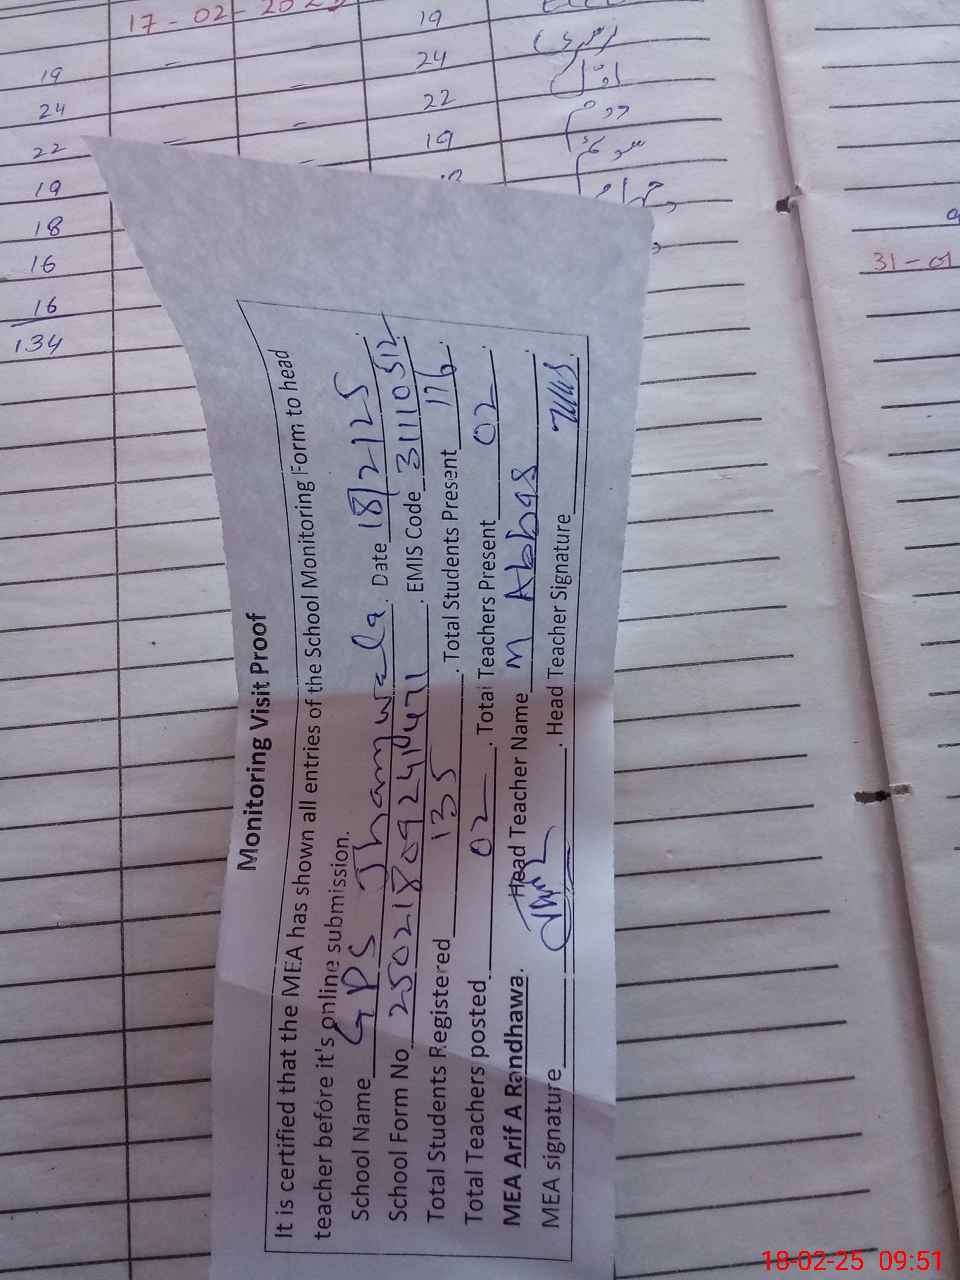 17-02-2025
19
19 - - 24
24 - - 22
22 - - 19
19
18
16
16
134
اول
دوم
سوم
چہارم
31-01
Monitoring Visit Proof
It is certified that the MEA has shown all entries of the School Monitoring Form to head
teacher before it's online submission.
School Name GPS Jhangwala. Date 18/2/25.
School Form No. EMIS Code 31110512
Total Students Registered 135. Total Students Present 116.
Total Teachers posted 02. Total Teachers Present 02.
MEA Arif A Randhawa. Head Teacher Name M Abbas.
MEA signature. Head Teacher Signature.
18-02-25 09:51